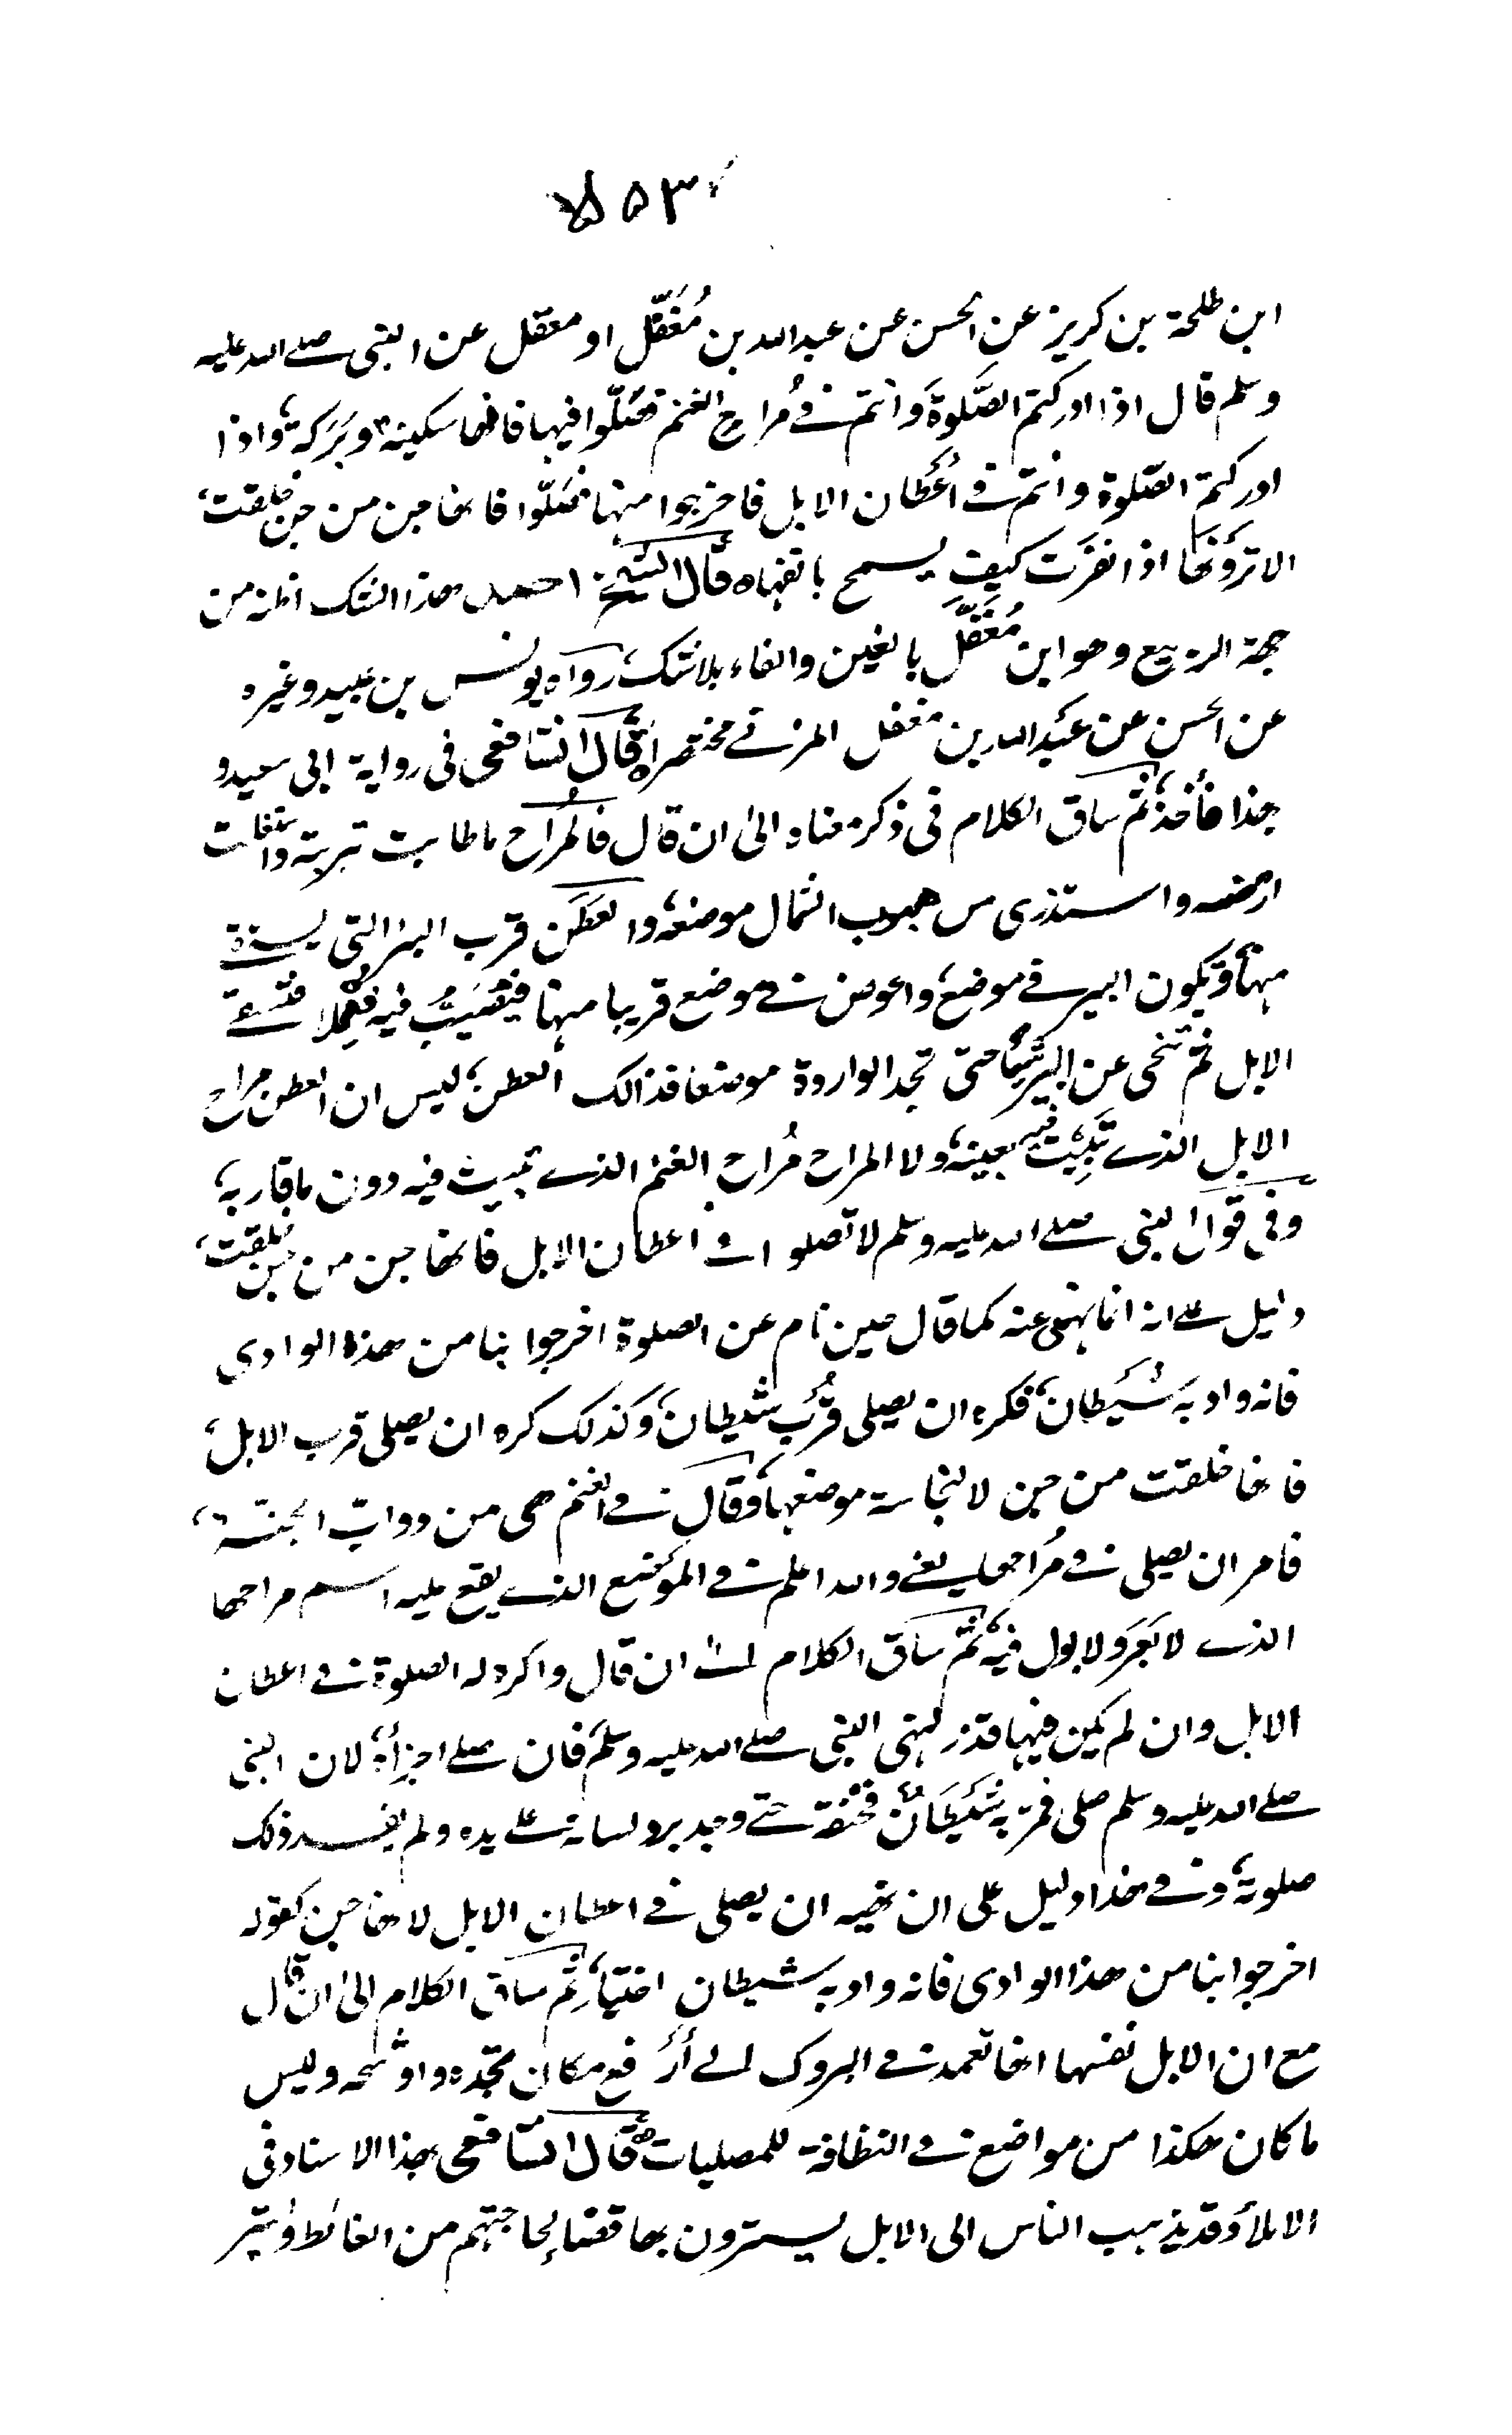 ٥٥٣
ابن طلحة بن كريز عن الحسن عن عبد الله بن مُغَفَّل او معقل عن النبى صلے الله عليه
وسلم قال اذا ادركتم الصَّلوةَ وانتم فے مُراح الغنم فصَلّوا فيها فانها سكينة وبَرَكة واذا
ادركتم الصّلوة وانتم فے اَعْطان الابل فاخرجوا منها فصَلّوا فانها جن من جن خلقت
الا ترَوْنَها اذا نفرَت كيف يسمح بانفها ه قال الشيخ احمد هذا الشك اظنه من
جهة الربيع وهو ابن مُغَفَّل بالغين والفاء بلا شك رواه يونس بن عبيد وغيره
عن الحسن عن عَبْد الله بن مغفل المزنے مختصراً ه قال الشافعى فى رواية ابى سعيد و
بهذا فأخذ ثم ساق الكلام فى ذكر معناه الىٰ ان قال فالمُراح ما طابت تربته واستغلت
ارضه واستذرى من هبوب الشمال موضعه والعَطَن قرب البئر التى يستقے
منها ويكون البير فے موضع والحوض فے موضع قريبا منها فيُصَبُّ فيه فيُملا فتسقے
الابل ثم تنحى عن البير شيأ حتى تجد الواردة موضعا فذالك العطن ليس ان العطن مراح
الابل الذے تَبِيْت فيه بعينه ولا المراح مُراح الغنم الذے تبيت فيه دون ما قاربه
وفى قول النبى صلے الله عليه وسلم لا تصلوا فے اعطان الابل فانها جن من جن خلقت
دليل علے انه انما نهى عنه كما قال حين نام عن الصلوة اخرجوا بنا من هذه الوادى
فانه واد به شَيْطان فكره ان يصلى قُرْب شيطان وكذلك كره ان يصلى قرب الابل
فانها خلقت من جن لا لنجاسة موضعها وقال فے الغنم هى من دوابّ الجنّة
فامر ان يصلى فے مُراحها يعنے والله اعلم فے الموضع الذے يقع عليه اسم مراحها
الذے لا بَعَر ولا بول فيه ثم ساق الكلام الےٰ ان قال واكره له الصلوة فے اعطان
الابل وان لم يكن فيها قذر لنهى النبى صلے الله عليه وسلم فان صلے اجزأه لان النبى
صلے الله عليه وسلم صلى فمر به شَيْطَانٌ فخنقه حتے وجد برد لسانه علے يده ولم يفسد ذلك
صلوته وفے هذا دليل على ان نهيه ان يصلى فے اعطان الابل لانها جن كقوله
اخرجوا بنا من هذا الوادى فانه واد به شيطان اختيار ثم ساق الكلام الىٰ ان قال
مع ان الابل نفسها انها تعمد فے البروك الے أدْقع مكان تجده واوسخه وليس
ما كان هكذا من مواضع فے النظافة للمصليات ه قال الشافعى بهذا الاسناد فى
الاملا وقد يذهب الناس الى الابل يسترون بها قضاء لحاجتهم من الغائط